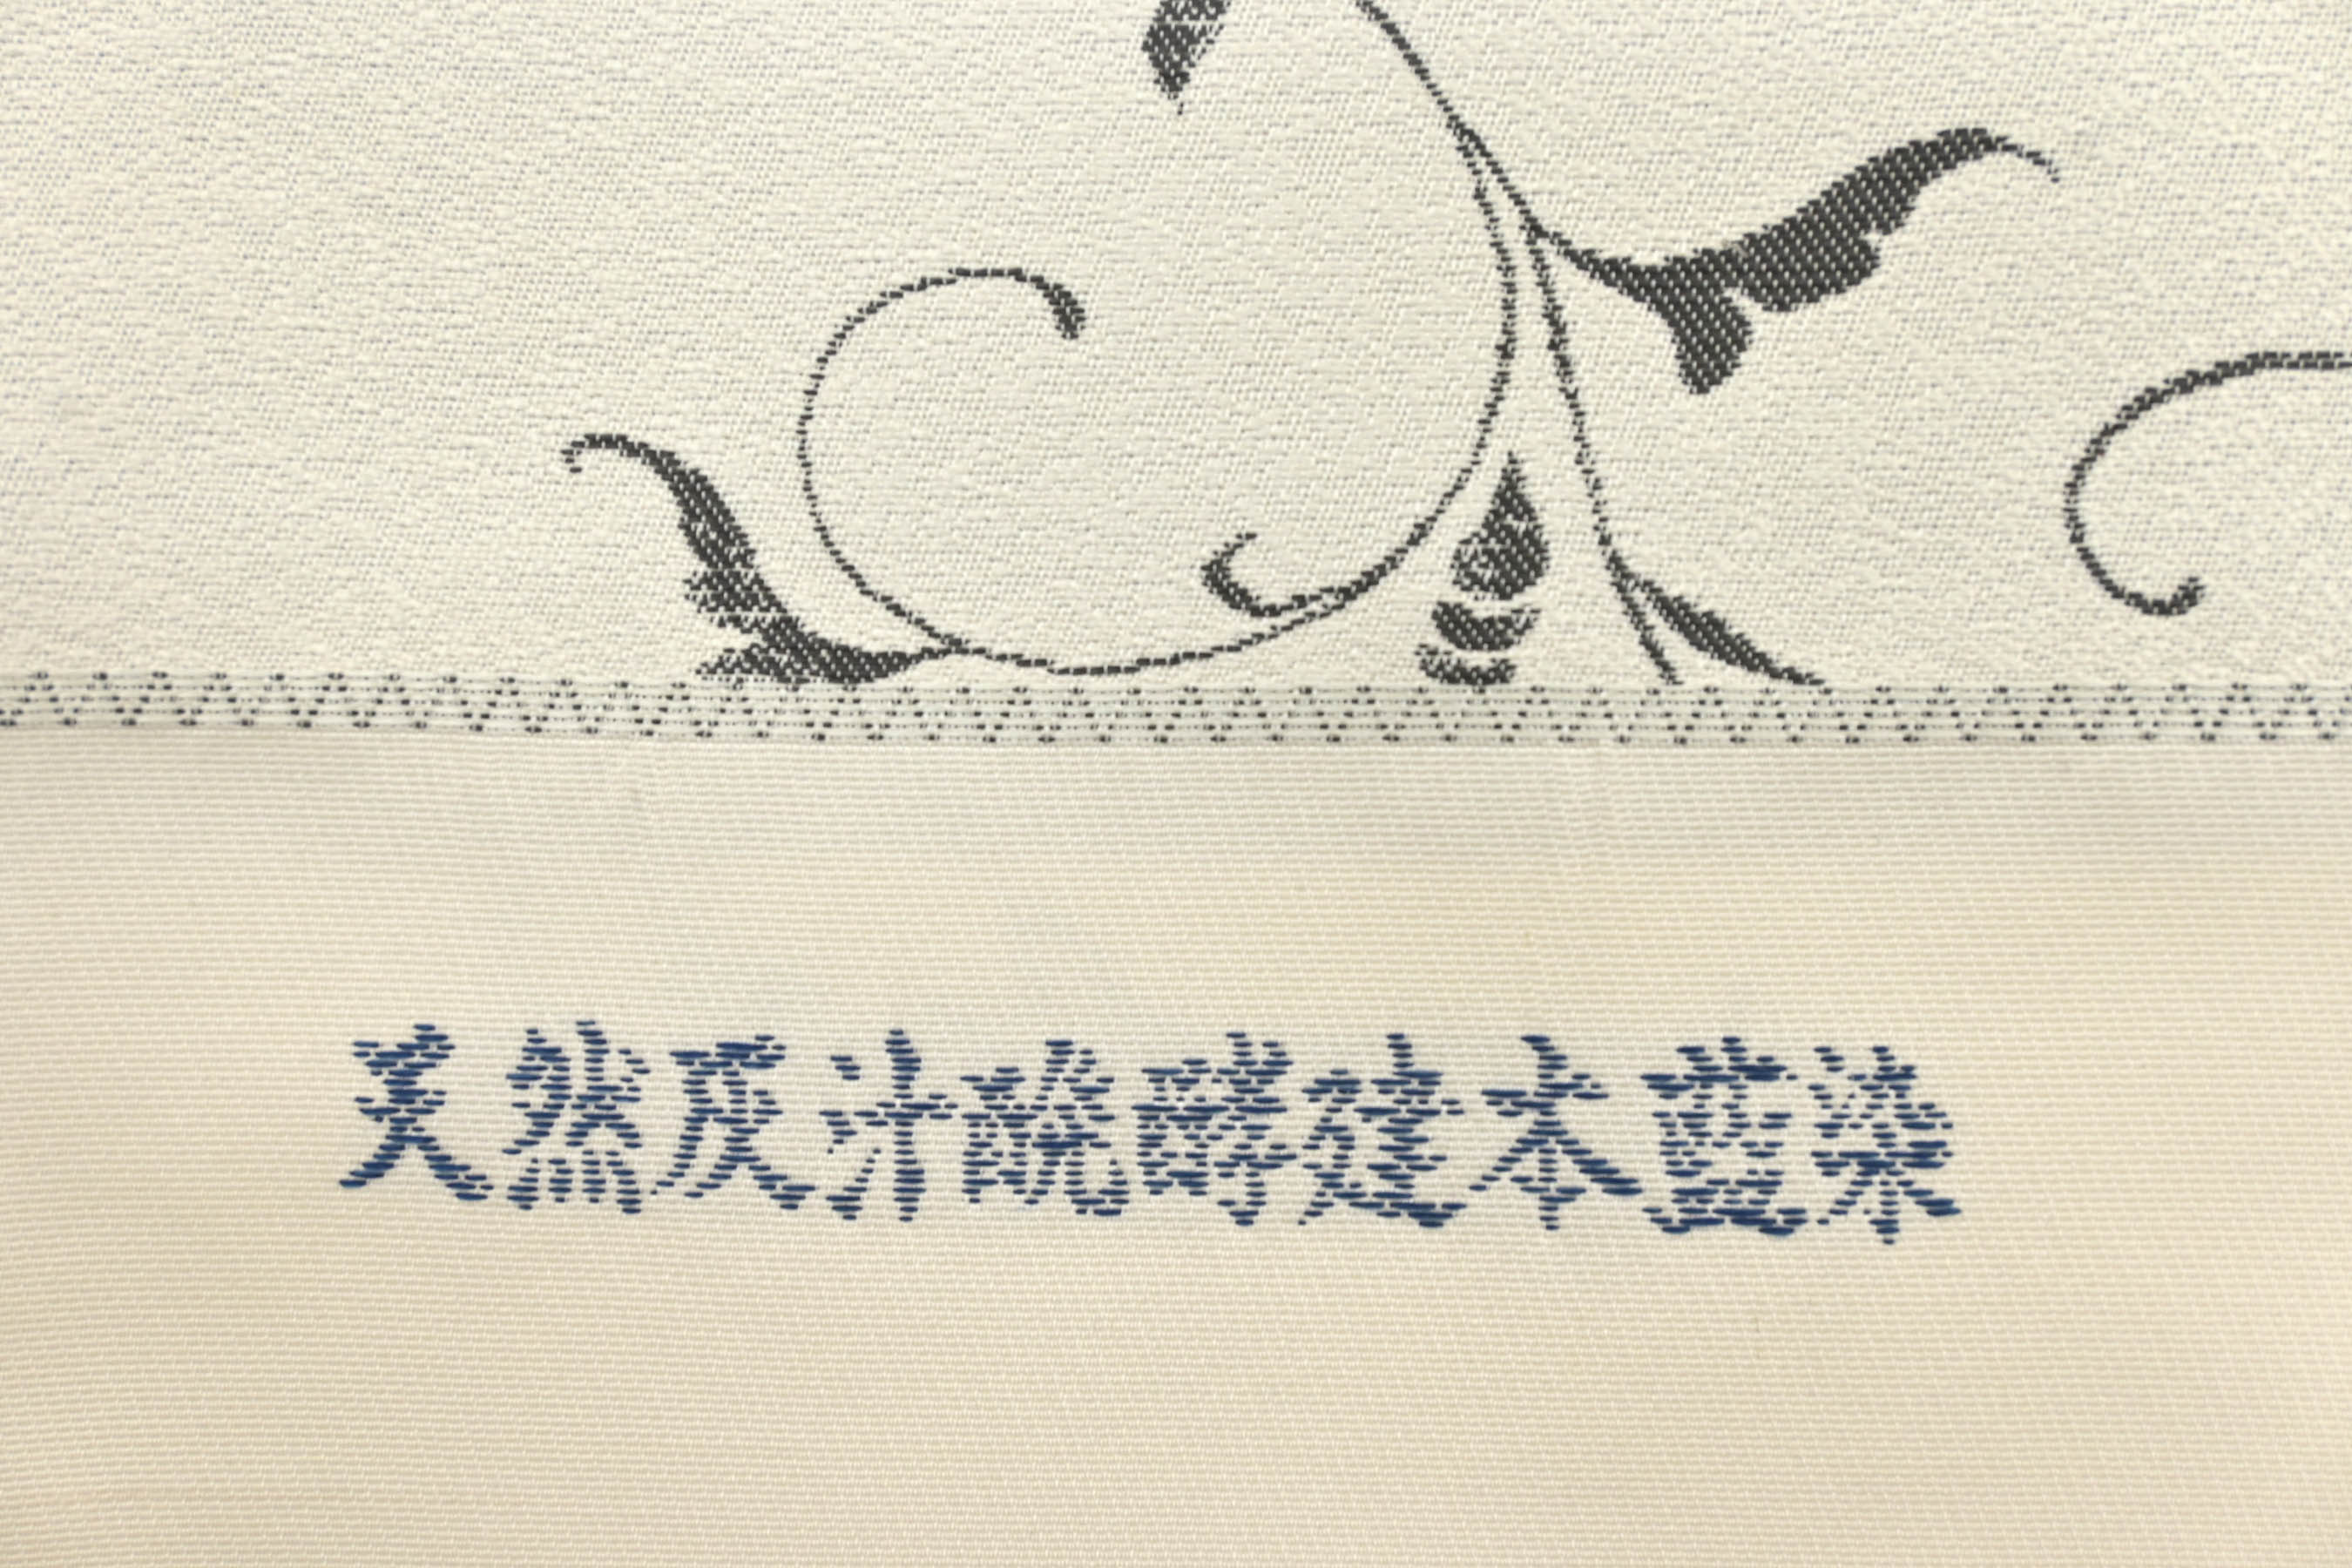 天然灰汁醗酵建本藍染